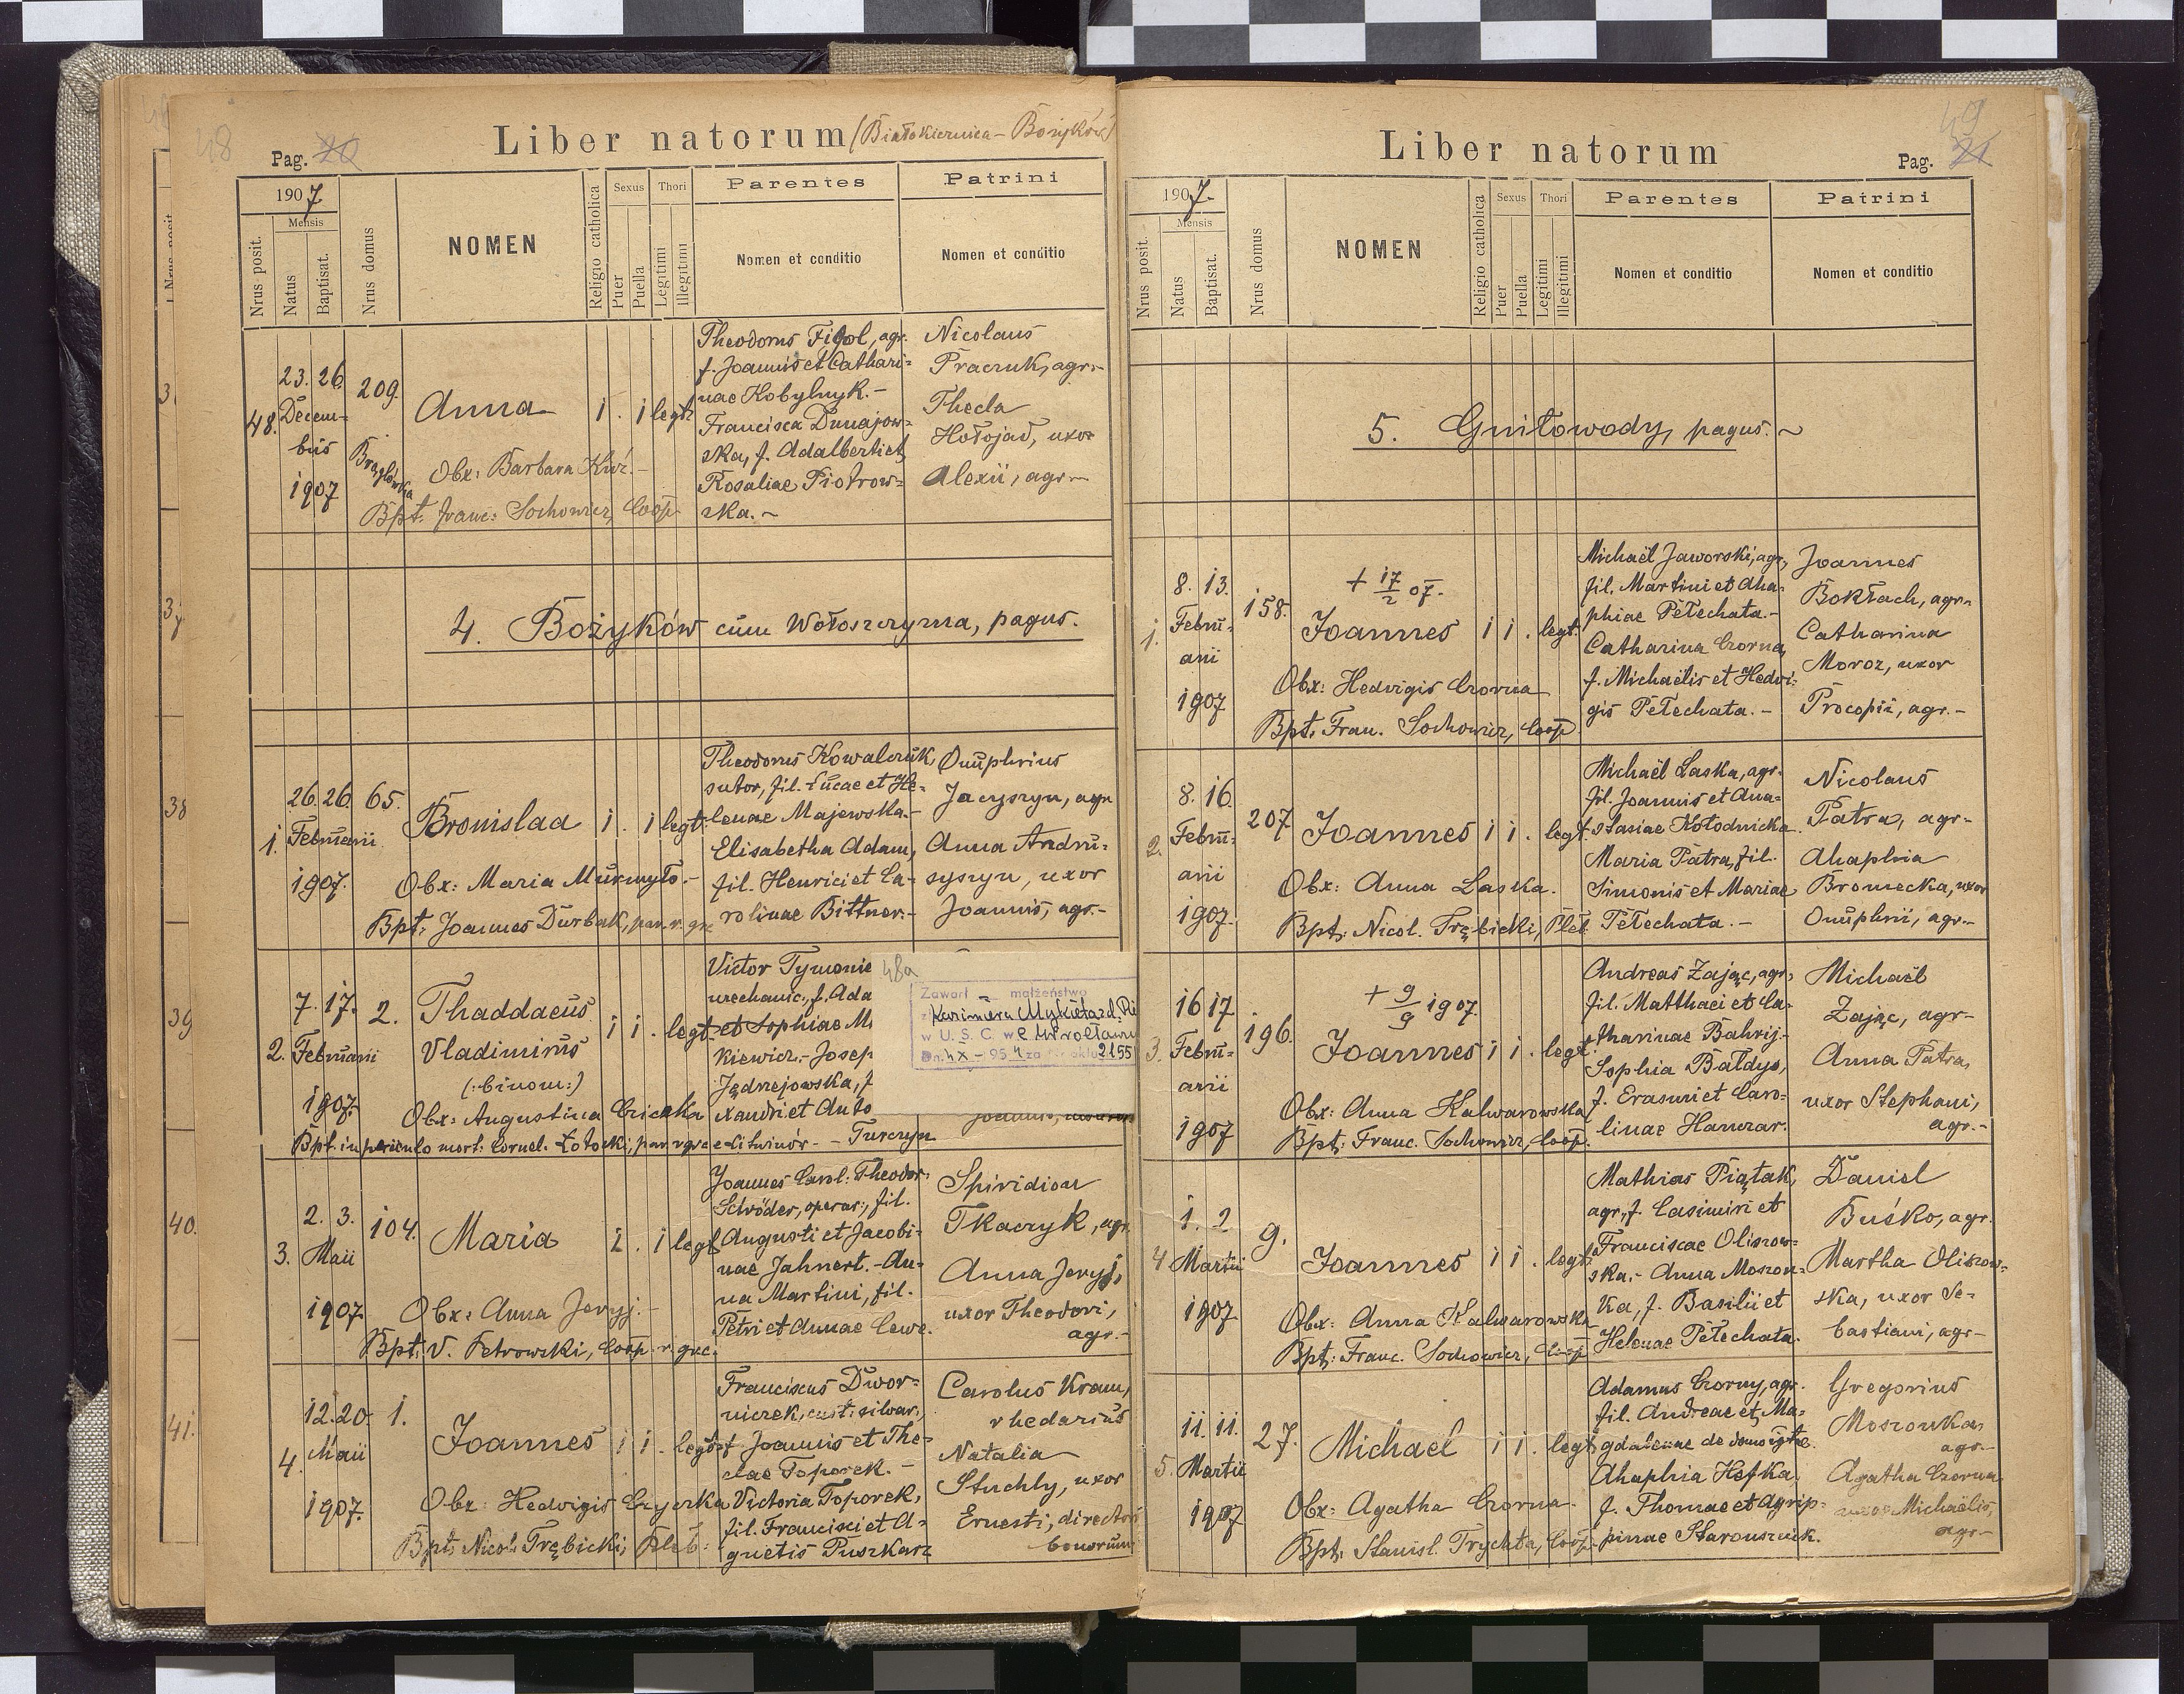 48
Pag. 20
Liber natorum (Białokiernica - Bożyków)
1907.
Mensis
Nrus posit.
Natus
Baptisat.
Nrus domus
NOMEN
Religio catholica
Sexus
Puer
Puella
Thori
Legitimi
Illegitimi
Parentes
Nomen et conditio
Patrini
Nomen et conditio
48.
23. 26.
Decem-
bris
1907
209.
Anna
1 . 1 legt.
Obx: Barbara Kuź.-
Bpt. Franc: Sochowicz, Coop.
Theodorus Figol, agr.
f. Joannis et Cathari=
nae Kobylnyk.-
Francisca Dunajow=
ska, f. Adalberti et
Rosaliae Piotrow=
ska.~
Nicolaus
Praczuk, agr.-
Thecla
Hołojad, uxor
Alexii, agr.-
4. Bożyków cum Wołoszczyzna, pagus.
1.
26. 26.
Februarii
1907.
65.
Bronislaa
1 . 1 legt.
Obx: Maria Murmyło.-
Bpt: Joannes Durbak, par. r. grc.
Theodorus Kowalczuk,
sutor, fil. Lucae et He=
lenae Majewska.-
Elisabetha Adam,
fil. Henrici et Ca=
rolinae Bittner.-
Onuphrius
Jacyszyn, agr.
Anna Andru=
syszyn, uxor
Joannis, agr.-
2.
7. 17.
Februarii
1907.
2.
Thaddaeus
Vladimirus
(:binom:)
1 1 . legt.
Obx: Augustina
Bpt. in periculo mort. Cornel. Łotocki, par. r. grc. e Litwinów. - Turczyn
Victor Tymonie
mechanic., f. Ada
et Sophiae M
kiewicz.- Josep
Jędrzejowska, f
xandri et Anto
48a
Zawarł małżeństwo
w U. S. C. we Wrocławiu
3.
2. 3.
Maii
1907
104.
Maria
1 . 1 legt.
Obx: Anna Jeryj.-
Bpt: V. Petrowski, Coop. r. grc.
Joannes Carol. Theodor.
Schröder, operar., fil.
Augusti et Jacobi=
nae Jahnert.- An=
na Martini, fil.
Petri et Annae Lewe.
Spiridion
Tkaczyk, agr.
Anna Jeryj,
uxor Theodori,
agr.-
4.
12. 20.
Maii
1907.
1.
Joannes
1 1 . legt.
Obx: Hedvigis Czyczka
Bpt. Nicol. Trębicki, Pleb.
Franciscus Dwor=
niczek, cust. silvar.,
f. Joannis et The=
clae Toporek.-
Victoria Toporek,
fil. Francisci et A=
gnetis Puszkarz
Carolus Kram,
rhedarius
Natalia
Stuchly, uxor
Ernesti, directori
bonorum
49
Pag. 21
Liber natorum
1907.
Mensis
Nrus posit.
Natus
Baptisat.
Nrus domus
NOMEN
Religio catholica
Sexus
Puer
Puella
Thori
Legitimi
Illegitimi
Parentes
Nomen et conditio
Patrini
Nomen et conditio
5. Gniłowody, pagus.~
1.
8. 13.
Febru=
arii
1907
158.
+ 17/2 07.
Joannes
1 1 . legt.
Obx: Hedvigis Czorna
Bpt. Fran. Sochowicz, Coop
Michaël Jaworski, agr,
fil. Martini et Aha=
phiae Petechata.-
Catharina Czorna,
f. Michaëlis et Hedvi=
gis Petechata.-
Joannes
Bokłach, agr.-
Catharina
Moroz, uxor
Procopii, agr.-
2.
8. 16.
Febru=
arii
1907.
207.
Joannes
1 1 . legt.
Obx: Anna Laska.
Bpt. Nicol. Trębicki, Pleb.
Michaël Laska, agr.
fil. Joannis et Ana=
stasiae Kołodnicka.
Maria Patra, fil.
Simonis et Mariae
Petechata.-
Nicolaus
Patra, agr.-
Ahaphia
Bromecka, uxor
Onuphrii, agr.-
3.
16 17
Febru=
arii
1907
196.
+ 9/9 1907.
Joannes
1 1 . legt.
Obx: Anna Kalwarowska
Bpt: Franc. Sochowicz, Coop.
Andreas Zając, agr,
fil. Matthaei et Ca=
tharinae Bahrij.-
Sophia Bałdys,
f. Erasmi et Caro=
linae Hanczar.
Michaël
Zając, agr.-
Anna Patra,
uxor Stephani,
agr.-
4
1. 2
Martii
1907
9.
Joannes
1 1 . legt.
Obx: Anna Kalwarowska
Bpt: Franc. Sochowicz, Coop
Mathias Piątak,
agr., f. Casimiri et
Franciscae Oliszow=
ska.- Anna Moszon=
ka, f. Basilii et
Helenae Petechata.
Daniel
Buśko, agr.
Martha Oliszow=
ska, uxor Se=
bastiani, agr.-
5.
11. 11.
Martii
1907
27.
Michaël
1 1 . legt.
Obx: Agatha Czorna.
Bpt. Stanisl. Trychta, Coop.
Adamus Czorny, agr.
fil. Andreae et Ma=
gdalenae de domo
Ahaphia Hefka,
f. Thomae et Agrip=
pinae Starouszczuk.
Gregorius
Moszonka,
agr.-
Agatha Czorna
uxor Michaëlis,
agr.-